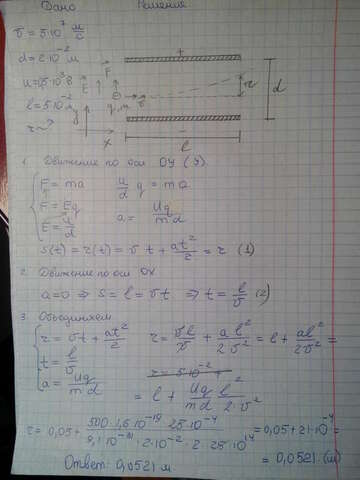 Дано Решение
v = 5·10⁷ м/с
d = 2·10⁻² м
l = 5·10⁻² м
r ~
+
F
E
q, m
v
r
d
y
x
-
l
1. Движение по оси OY (y)
F = ma
F = Eq
E = u/d
u/d q = ma
a = Uq/md
S(t) = r(t) = v t + at²/2 = r (1)
2. Движение по оси OX
a=0 ⇒ S = l = vt ⇒ t = l/v (2)
3. Объединяем
r = vt + at²/2
t = l/v
a = Uq/md
r = vl/v + al²/2v² = l + al²/2v² =
r = 5·10⁻² +
= l + Uq/md l²/2·v²
r = 0,05 + 500·1,6·10⁻¹⁹·25·10⁻⁴/9,1·10⁻³¹·2·10⁻²·2·25·10¹⁴ = 0,05 + 21·10⁻⁴ =
= 0,0521 (м)
Ответ: 0,0521 м